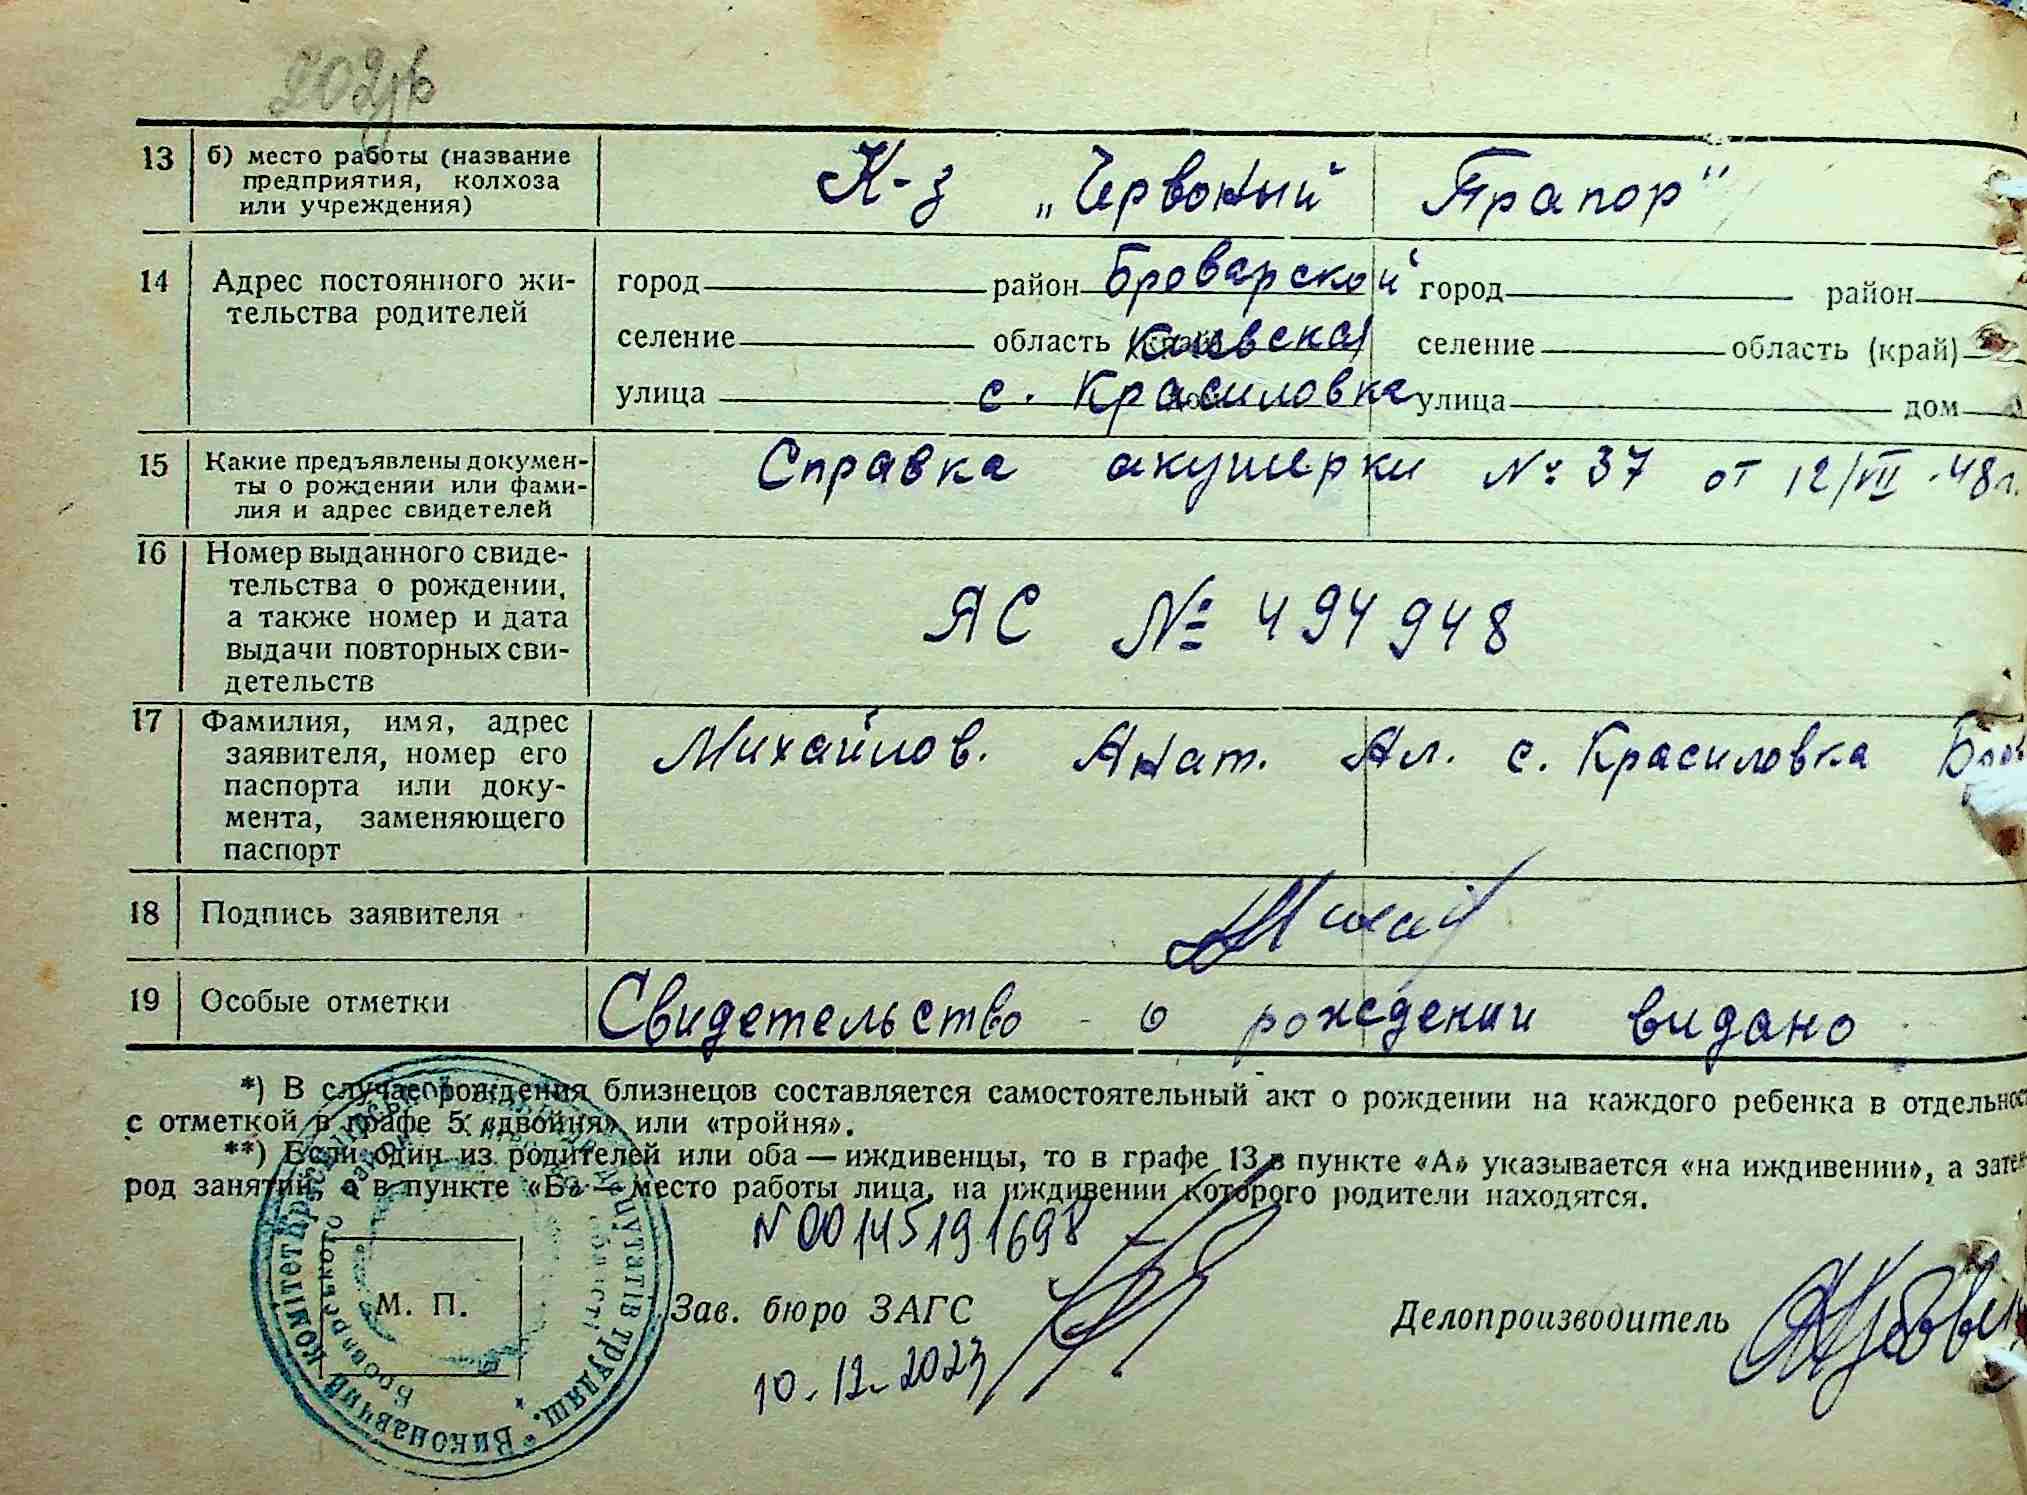 202
13 б) место работы (название К-з „Червоный Трапор"
предприятия, колхоза
или учреждения)
14 Адрес постоянного жи- город район Броварской город район
тельства родителей
селение область (край) Киевская селение область (край)
улица с. Красиловка улица дом
15 Какие предъявлены докумен- Справка акушерки № 37 от 12/VII 48 г.
ты о рождении или фами-
лия и адрес свидетелей
16 Номер выданного свиде-
тельства о рождении, ЯС № 494948
а также номер и дата
выдачи повторных сви-
детельств
17 Фамилия, имя, адрес Михайлов. Анат. Ал. с. Красиловка Бров
заявителя, номер его
паспорта или доку-
мента, заменяющего
паспорт
18 Подпись заявителя Михай
19 Особые отметки Свидетельство о рождении видано
*) В случае рождения близнецов составляется самостоятельный акт о рождении на каждого ребенка в отдельнос
с отметкой в графе 5: «двойня» или «тройня».
**) Если один из родителей или оба — иждивенцы, то в графе 13 в пункте «А» указывается «на иждивении», а зате
род занятий, а в пункте «Б» — место работы лица, на иждивении которого родители находятся.
N 00145191698
М. П. Зав. бюро ЗАГС Делопроизводитель
10.12.2023
Виконавчий комітет Красилівської депутатів трудящ.
Броварського
області